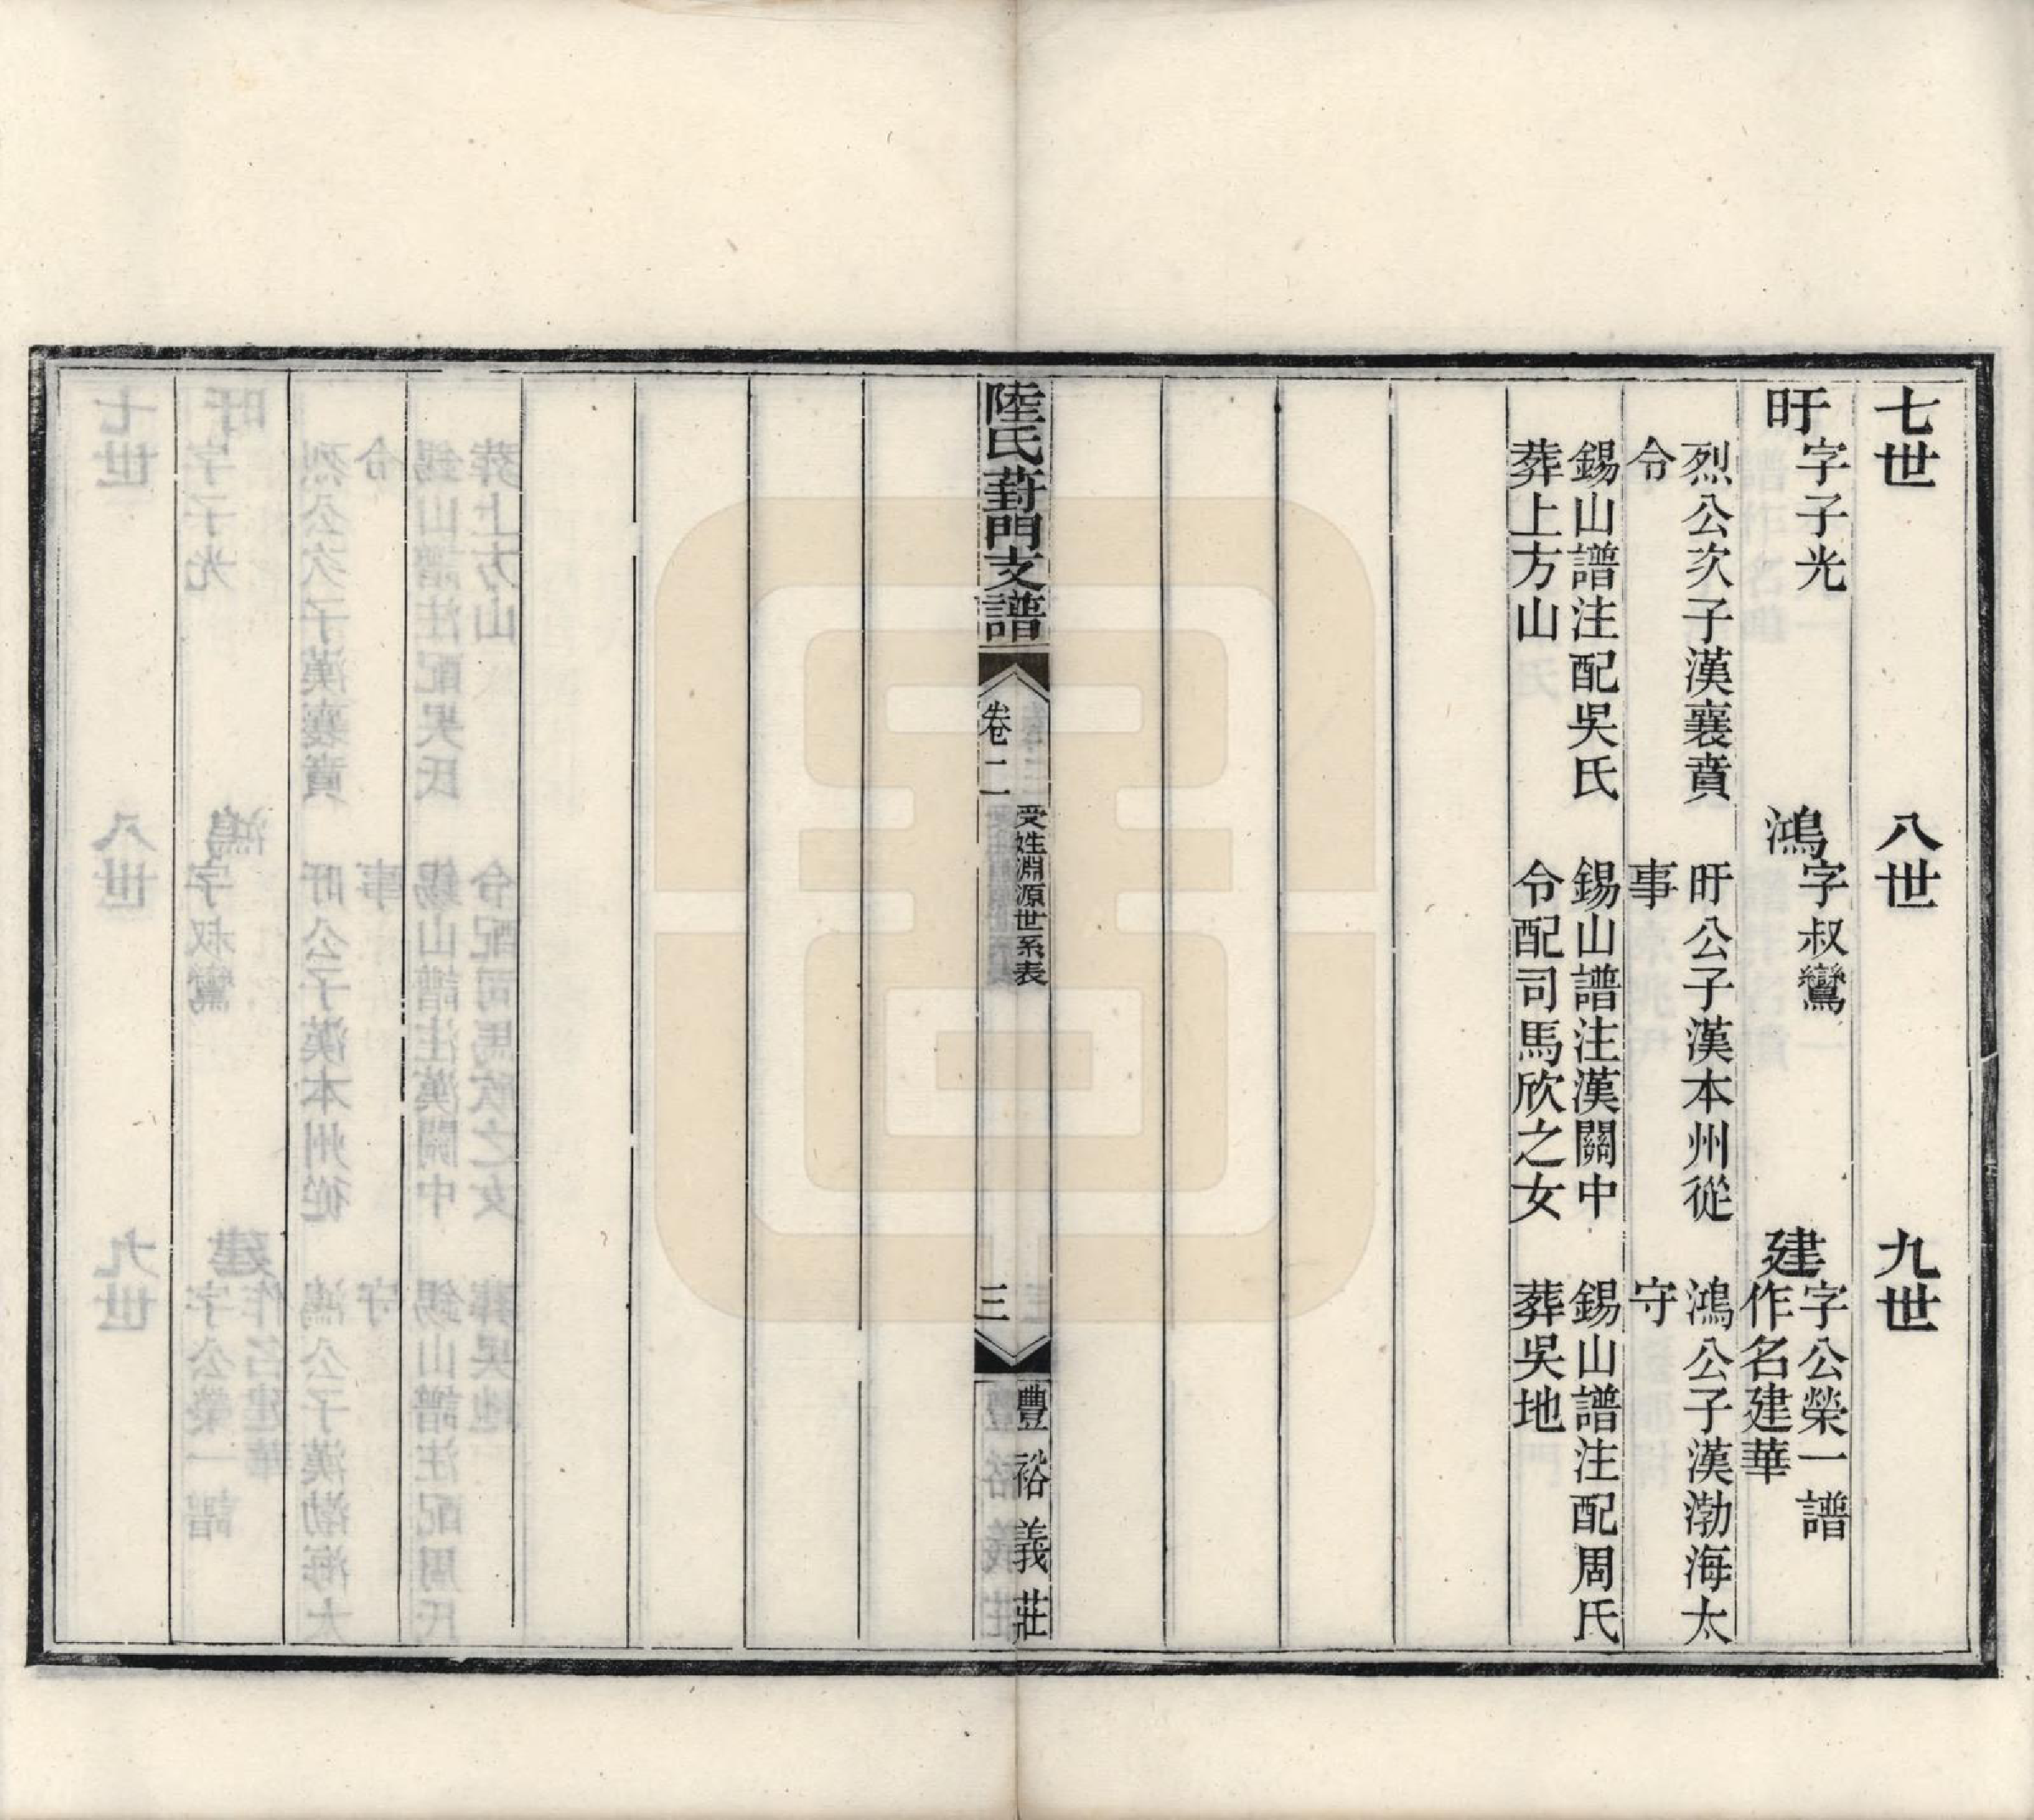 七世
八世
九世
盱 字子光
鴻 字叔鸞
建 字公榮一譜
作名建華
烈公次子漢襄賁
令
盱公子漢本州從
事
鴻公子漢渤海太
守
錫山譜注配吳氏
葬上方山
錫山譜注漢關中
令配司馬欣之女
錫山譜注配周氏
葬吳地
陸氏葑門支譜
卷二
受姓淵源世系表
三
豐裕義莊